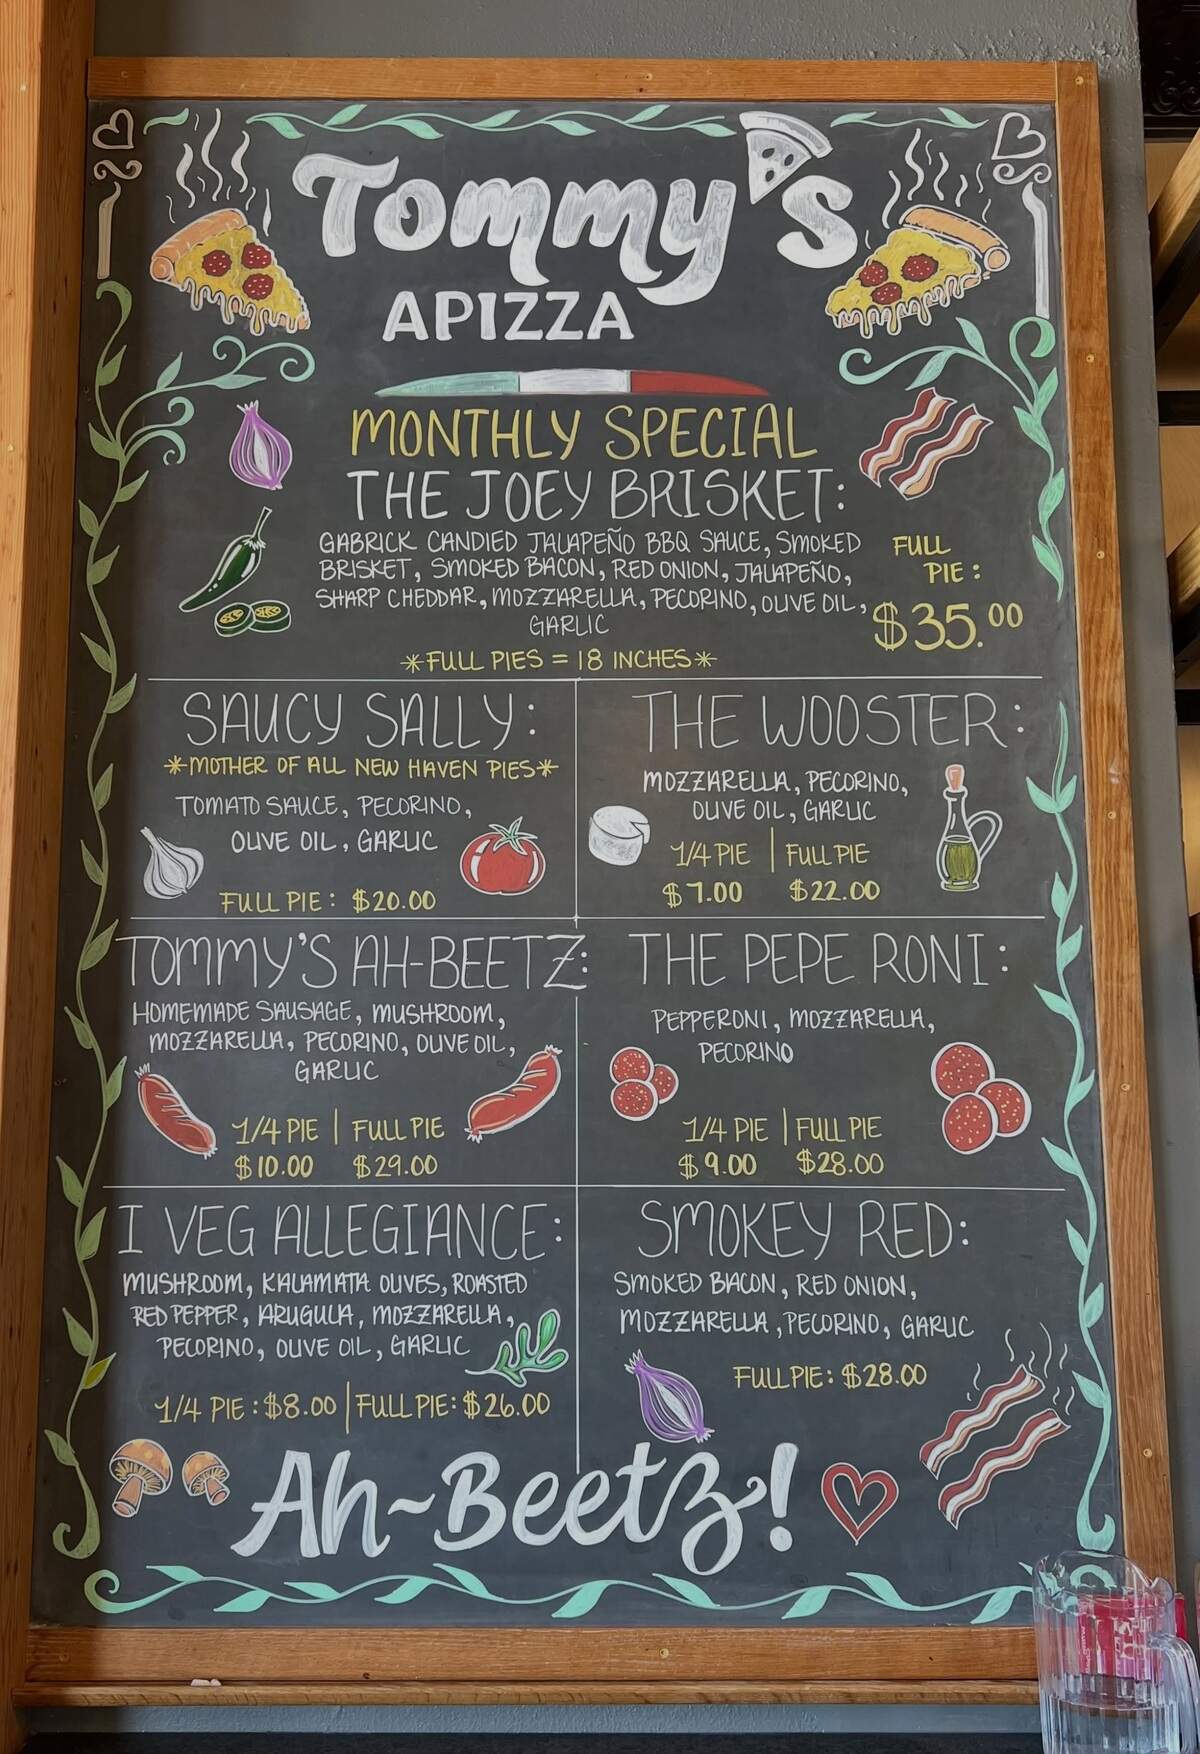 Tommy's
APIZZA
MONTHLY SPECIAL
THE JOEY BRISKET:
GABRICK CANDIED JALAPEÑO BBQ SAUCE, SMOKED
BRISKET, SMOKED BACON, RED ONION, JALAPEÑO,
SHARP CHEDDAR, MOZZARELLA, PECORINO, OLIVE OIL,
GARLIC
FULL
PIE:
$35.00
*FULL PIES = 18 INCHES*
SAUCY SALLY:
*MOTHER OF ALL NEW HAVEN PIES*
TOMATO SAUCE, PECORINO,
OLIVE OIL, GARLIC
FULL PIE: $20.00
THE WOOSTER:
MOZZARELLA, PECORINO,
OLIVE OIL, GARLIC
1/4 PIE | FULL PIE
$7.00 $22.00
TOMMY'S AH-BEETZ:
HOMEMADE SAUSAGE, MUSHROOM,
MOZZARELLA, PECORINO, OLIVE OIL,
GARLIC
1/4 PIE | FULL PIE
$10.00 $29.00
THE PEPE RONI:
PEPPERONI, MOZZARELLA,
PECORINO
1/4 PIE | FULL PIE
$9.00 $28.00
I VEG ALLEGIANCE:
MUSHROOM, KALAMATA OLIVES, ROASTED
RED PEPPER, ARUGULA, MOZZARELLA,
PECORINO, OLIVE OIL, GARLIC
1/4 PIE: $8.00 | FULL PIE: $26.00
SMOKEY RED:
SMOKED BACON, RED ONION,
MOZZARELLA, PECORINO, GARLIC
FULL PIE: $28.00
Ah-Beetz!